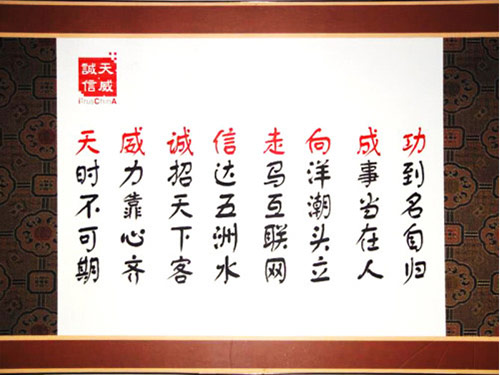 天威
誠信
iTrusChinA
天时不可期
威力靠心齐
诚招天下客
信达五洲水
走马互联网
向洋潮头立
成事当在人
功到名自归